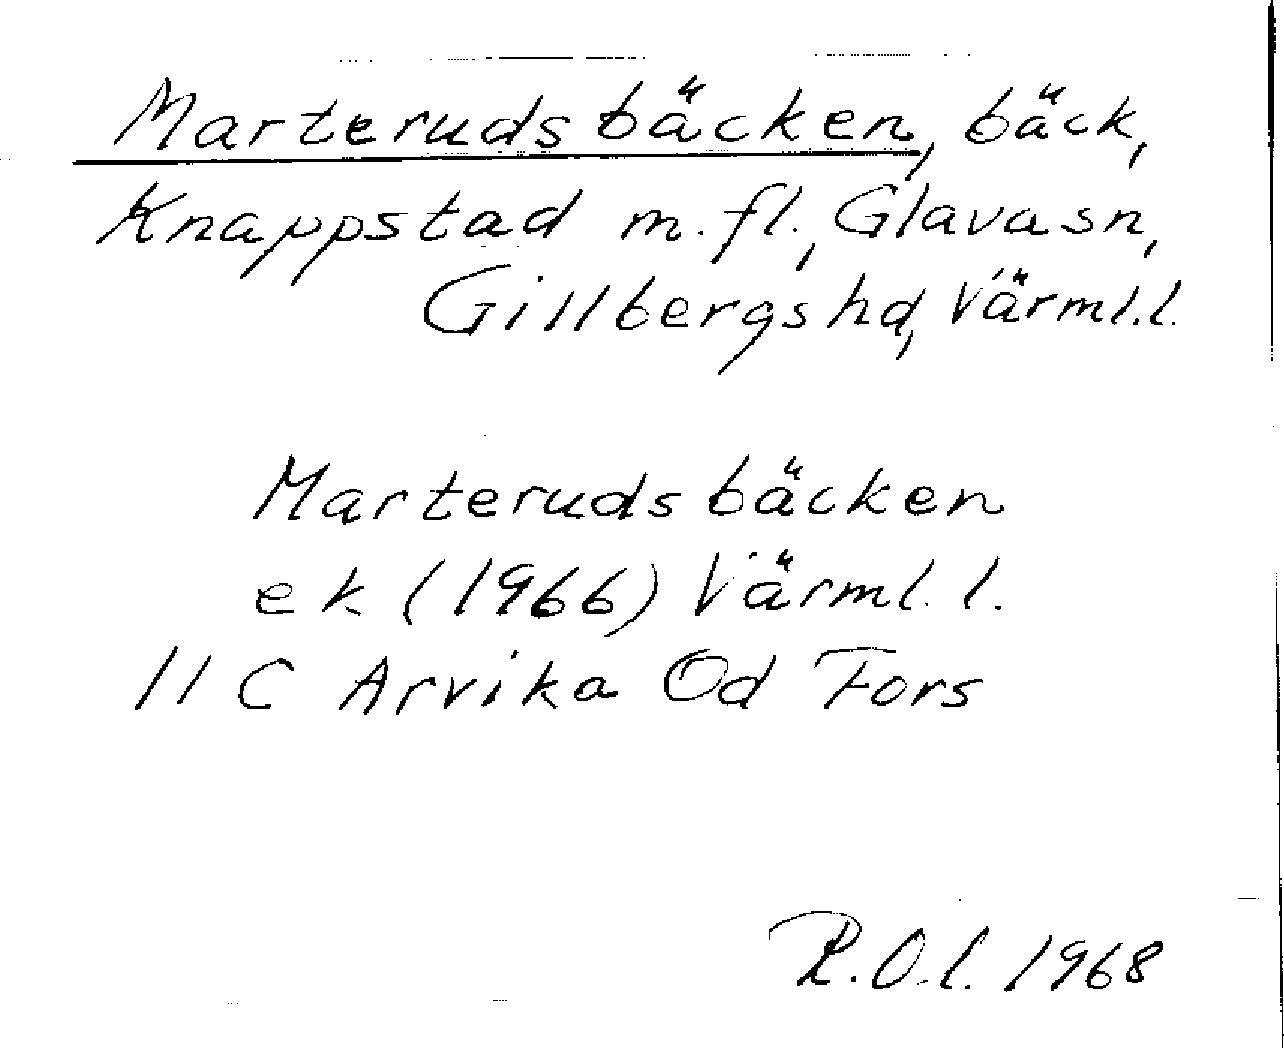 Marterudsbäcken, bäck,
Knappstad m.fl., Glavasn,
Gillbergshd, Värml.l.
Marterudsbäcken
ek (1966) Värml. l.
11 C Arvika Od Fors
R.O.l. 1968